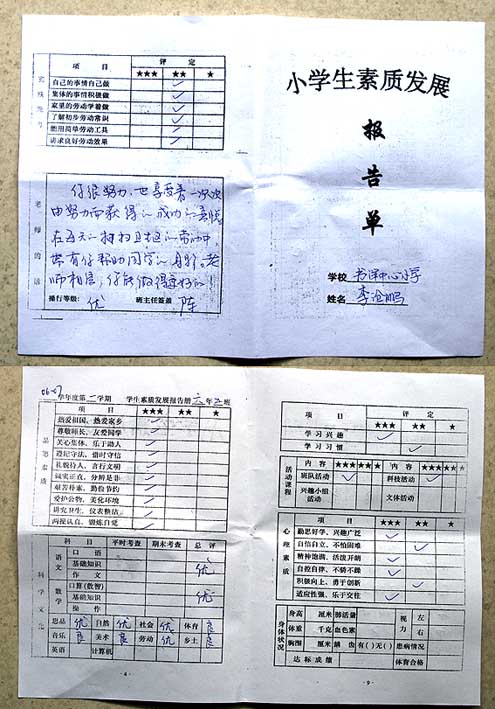 项 目
评 定
★★★ ★★ ★
自己的事情自己做
集体的事情积极做
家里的劳动学着做
了解初步劳动常识
能用简单劳动工具
讲求良好劳动效果
老师的话
你很努力,也享受着一次次
由努力而获得的成功的喜悦
在五天的打扫卫生区的劳动中,
总有你帮助同学的身影。老
师相信,你能做得更好的!
操行等级: 优 班主任签盖 陈
小学生素质发展
报
告
单
学校
姓名 李沧鹏
06-07学年度第二学期 学生素质发展报告册 六年五班
品德素质
项 目 ★★★ ★★ ★
热爱祖国、热爱家乡
尊敬师长、友爱同学
关心集体、乐于助人
遵纪守法、惜时守信
礼貌待人、言行文明
诚实正直、分辨是非
艰苦朴素、勤俭节约
爱护公物、美化环境
讲究卫生、仪表整洁
两操认真、锻炼自觉
科学文化
科 目 平时考查 期末考查 总 评
语文
口 语
基础知识 优
作 文
数学
口算(数智)
基础知识 优
操 作
思品 优 自然 优 社会 优 体育 良
音乐 良 美术 良 劳动 优 乡土 良
英语 计算机
- 4 -
项 目
评 定
★★★ ★★ ★
学习兴趣
学习习惯
活动课程
内 容 ★★★ ★★ ★ 内 容 ★★★ ★★ ★
班队活动 科技活动
兴趣小组活动 文体活动
心理素质
项 目 ★★★ ★★ ★
勤思好学、兴趣广泛
自信自立、不怕困难
精神饱满、活泼开朗
自控自律、不骄不躁
积极向上、勇于创新
适应性强、乐于交往
身体状况
身高 厘米 肺活量 视力 左
体重 千克 血色素 右
胸围 厘米 龋 齿 有( )无( ) 患病情况
达标成绩 体育合格
- 9 -